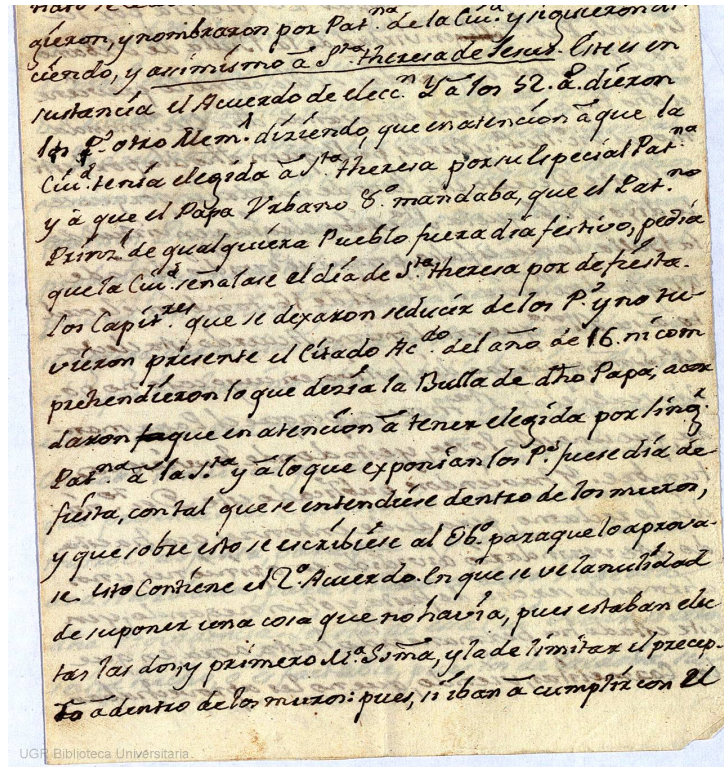 gieron, y nombraron por Pat.na de la Ciu.d y siguieron di-
ciendo, y assimismo â S.ta theresa de Jesus. Este es en
sustancia el Acuerdo de elecc.n Y â los 52. â. dieron
los P.s otro Mem.l diziendo, que en atencion â que la
Ciu.d tenia elegida â S.ta theresa por su Especial Pat.na
y â que el Papa Vrbano 8.o mandaba, que el Pat.no
Prinz.l de qualquiera Pueblo fuera dia festivo, pedia
que la Ciu.d señalase el dia de S.ta theresa por de fiesta.
los Capit.res que se dexaron seducir de los P.s y no tu-
vieron presente el Citado Ac.do del año de 16. ni com
prehendieron lo que dezia la Bulla de dho Papa, acor
daron que en atencion â tener elegida por sing.r
Pat.na â la S.ta y â lo que exponian los P.s fuese dia de
fiesta, con tal que se entendiese dentro de los muros,
y que sobre esto se escribiese al Ob.o para que lo aprova-
se. Esto Contiene el 2.o Acuerdo. En que se ve la nulidad
de suponer una cosa que no havia, pues estaban elec
tas las dos, y primero M.a SSma, y la de limitar el precep-
to â dentro de los muros: pues, si iban â cumplir con el
UGR Biblioteca Universitaria.